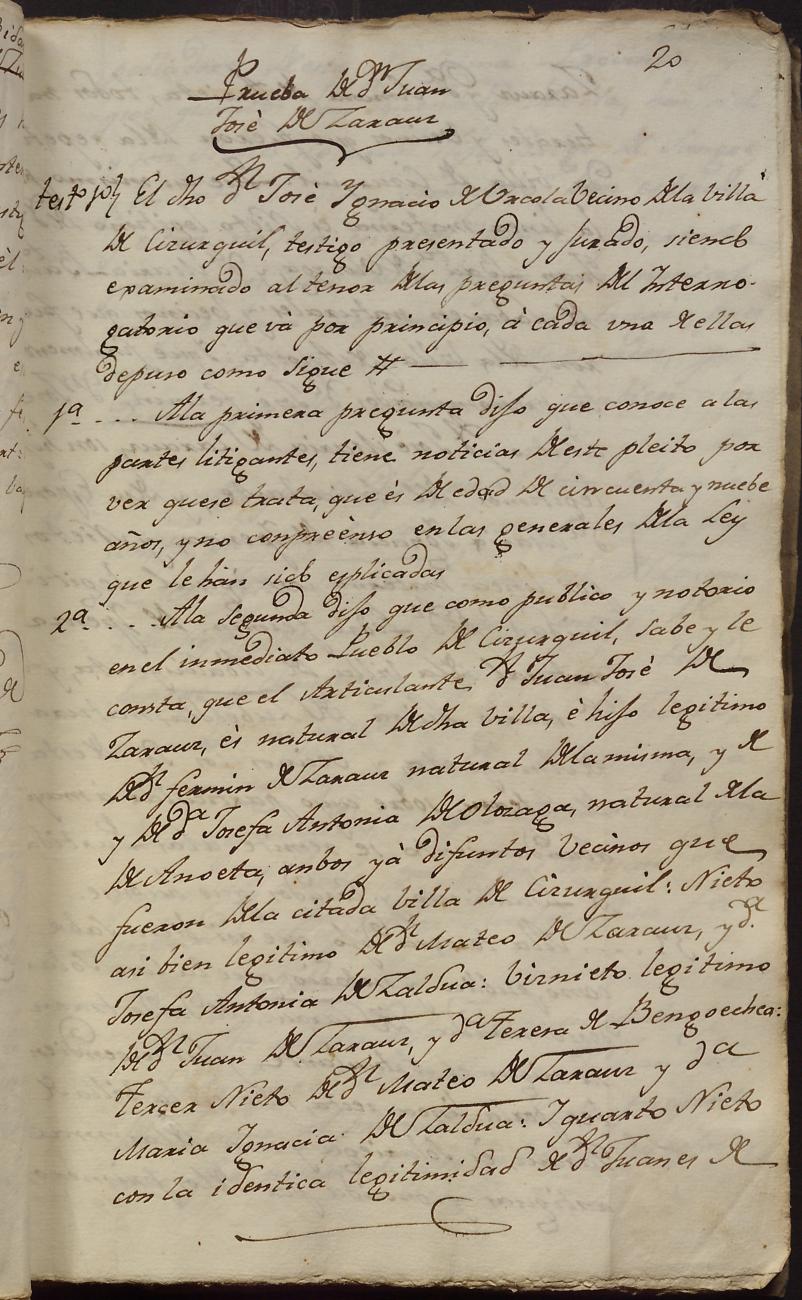 20
Prueba de dn Juan
Josè de Zaraur
testo 1º El dho dn Josè Ygnacio de Urcola Vecino dela villa
de Cizurquil, testigo presentado y jurado, siendo
examinado al tenor delas preguntas del Interro-
gatorio que và por principio, à cada vna de ellas
depuso como sigue #
1a ... Ala primera pregunta dijo que conoce a las
partes litigantes, tiene noticias deeste pleito por
ver quese trata, que ès de edad de cincuenta y nuebe
años, y no conpreènso enlas generales dela Ley
que le hàn sido esplicadas
2a ... Ala segunda dijo que como publico y notorio
enel inmediato Pueblo de Cizurquil, sabe y le
consta, que el Articulante dn Juan Josè de
Zaraur, ès natural de dha villa, è hijo legitimo
de dn fermin de Zaraur natural delamisma, y de
y de da Josefa Antonia de Olozaga, natural dela
de Anoeta, anbos yà difuntos vecinos que
fueron dela citada villa de Cizurquil: Nieto
asi bien legitimo de dn Mateo de Zaraur, y da
Josefa Antonia de Zaldua: birnieto legitimo
de dn Juan de Zaraur, y da Teresa de Bengoechea:
tercer Nieto de dn Mateo de Zaraur y da
Maria Ygnacia de Zaldua: Y quarto Nieto
con la identica legitimidad de dn Juanes de